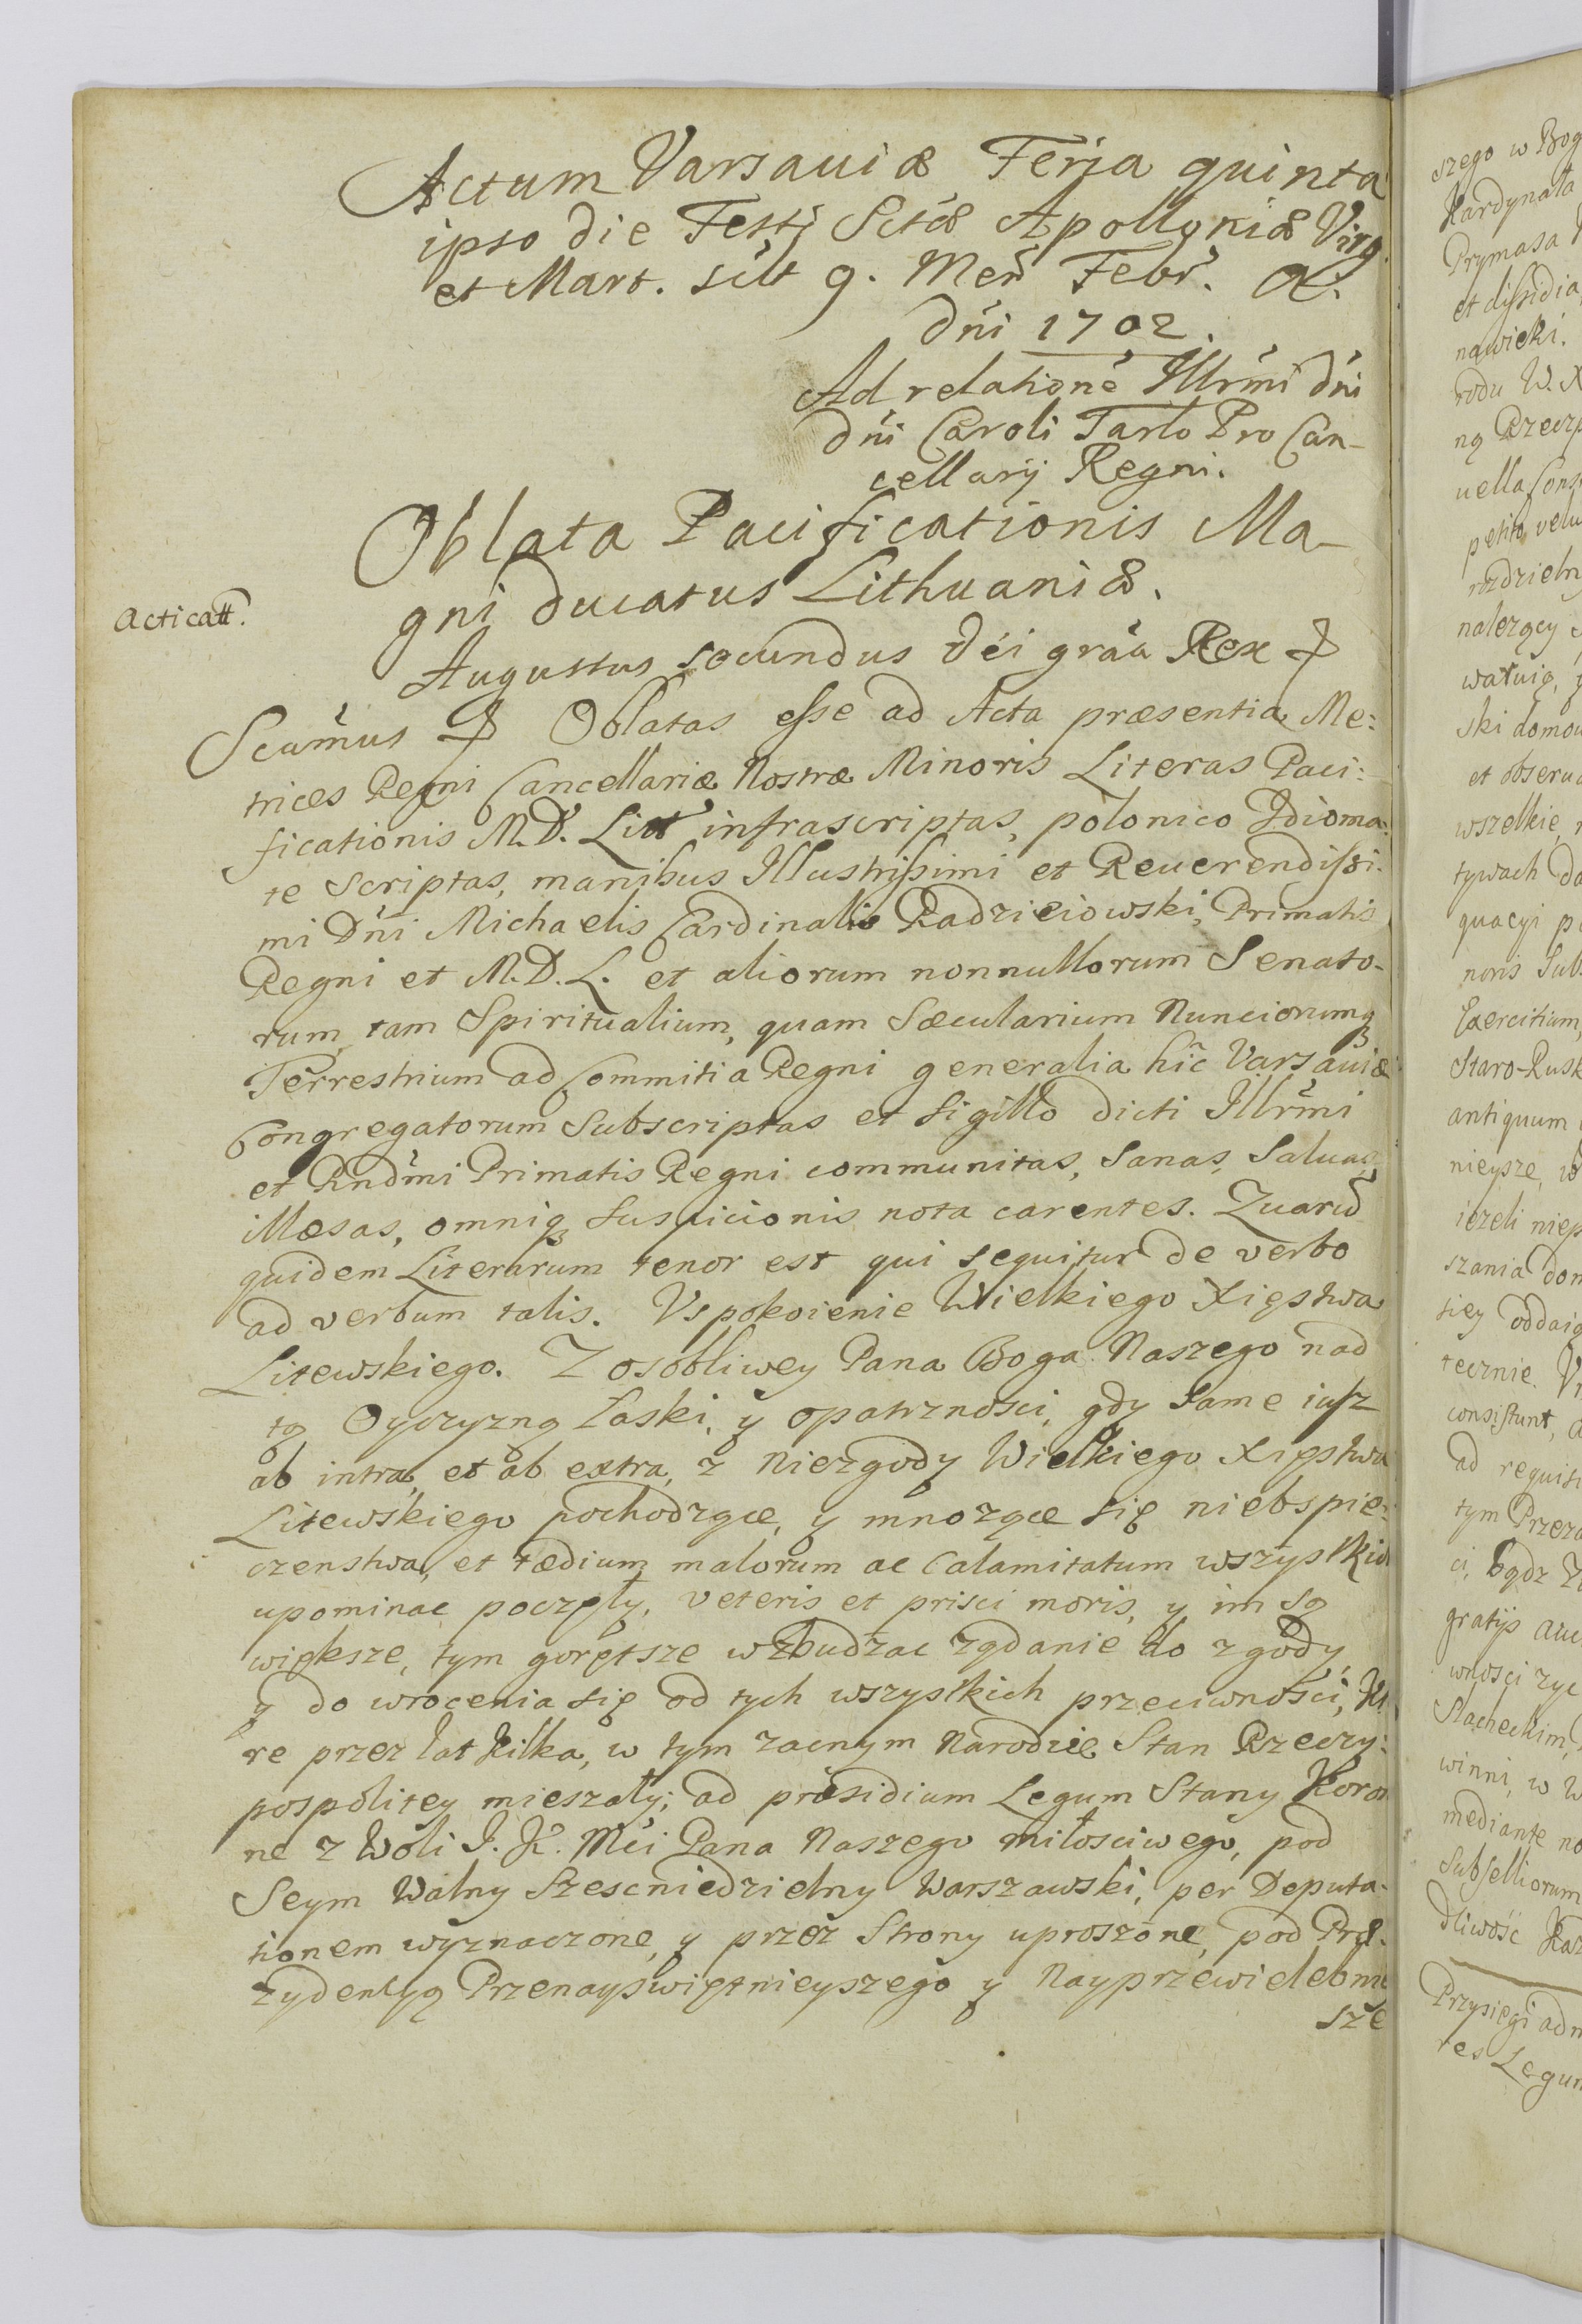 Actum Varsaviæ Feria quinta
ipso die Festi Sctæ Apolloniæ Virg.
et Mart. sclt 9. Men Febr. A.
Dni 1702.
Ad relatione Illrmi Dni
Dni Caroli Tarło Pro Can-
cellarij Regni.
Oblata Pacificationis Ma-
gni Ducatus Lithuaniæ.
Acticatt.
Augustus secundus Dei graa Rex &
Scamus & Oblatas esse ad Acta præsentia Me:
trices Regni Cancellariæ Nostræ Minoris Literas Paci:
ficationis M.D. Litt infrascriptas, polonico Idioma:
te scriptas, manibus Illustrissimi et Reuerendissi-
mi Dni Michaelis Cardinalis Radzieiowski, Primatis
Regni et M.D.L. et aliorum nonnullorum Senato-
rum, tam Spiritualium, quam Sæcularium Nunciorumq
Terrestrium ad Commitia Regni generalia hic Varsauiæ
Congregatorum Subscriptas et sigillo dicti Illrmi
et Rndmi Primatis Regni communitas, Sanas, Saluas,
illæsas, omniq suspicionis nota carentes. Quaru
quidem Literarum tenor est qui sequitur de verbo
ad verbum talis. Vspokoienie Wielkiego Xięstwa
Litewskiego. Z osobliwey Pana Boga Naszego nad
tą Oyczyzną Łaski, y opatrznosci, gdy same iusz
ab intra, et ab extra, z Niezgody Wielkiego Xięstwa
Litewskiego pochodzące, y mnozące się niebspie:
czenstwa, et tædium malorum ac Calamitatum wszystkich
upominac poczęły, veteris et prisci moris, y im są
większe, tym gorętsze wzbudzac ządanie do zgody,
y do wrocenia się od tych wszystkich przeciwnosci, Kt
re przez lat Kilka, w tym zacnym Narodzie Stan Rzeczy:
pospolitey mieszały; ad præsidium Legum Stany Koron
ne z Woli J. K. Mci Pana Naszego miłosciwego, pod
Seym Walny Szescniedzielny Warszawski, per Deputa-
tionem wyznaczone, y przez Strony uproszone, pod Præ-
zydencyą Przenayswiętnieyszego y Nayprzewielebnie
sze
szego w Bog
Kardynała
Prymasa
et dissidia,
nawieki.
rodu W. X
ną Rzeczp
uella Cons
petito, velu
rozdzieln
nalezący
watuią, y
ski domow
et obserua
wszelkie,
tywach do
quacyi p
noris Sub
Exercitium,
Staro-Rusk
antiquum
nieysze, w
iezeli niep
szania don
siey oddaią
tecznie.
consistunt, a
ad requisi
tym Przez
ci, bądz
gratijs
wnosci zyc
Slacheckim,
winni, w W
mediante no
Subselliorum
dliwość Kaz
Przysięgi adn
res Legum